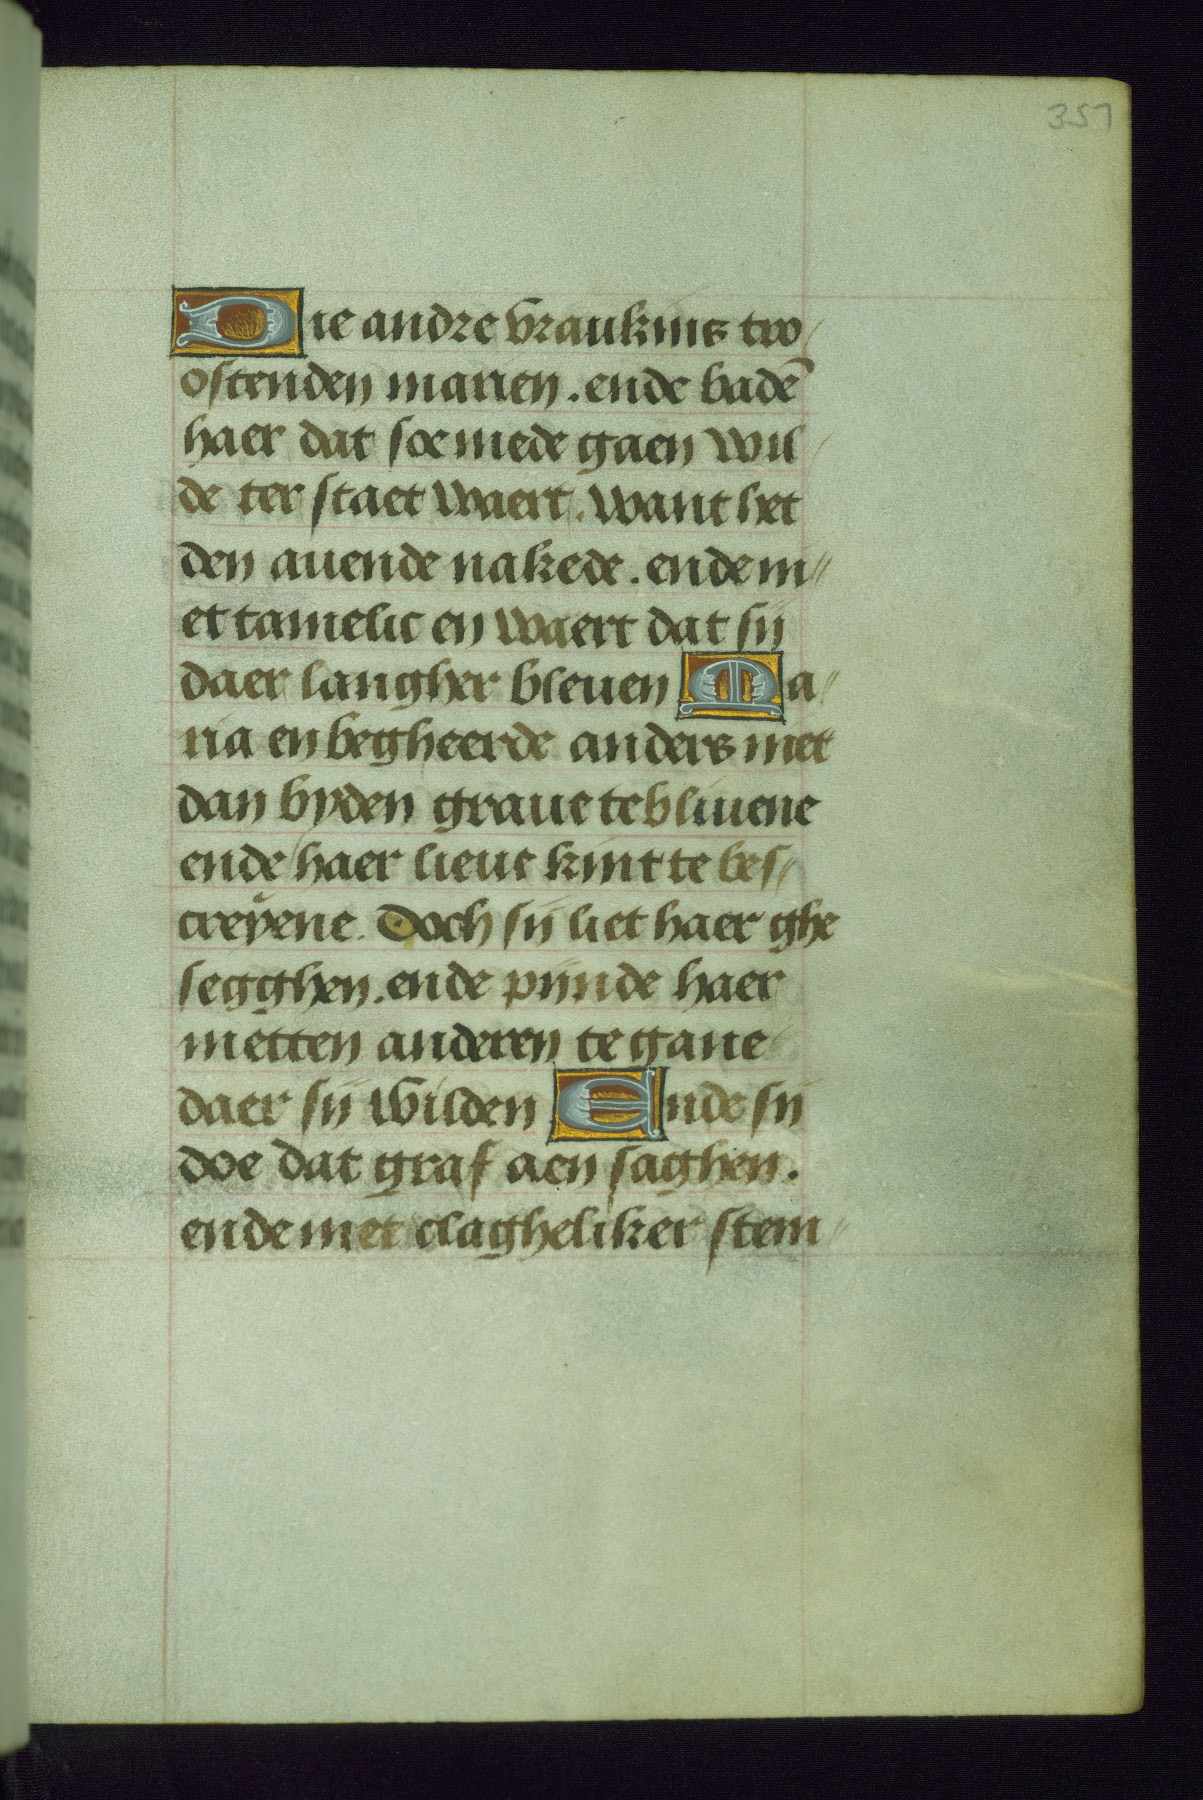 351
Die andre vraukins tro
ostenden marien . ende badē
haer dat soe mede gaen wil
de ter staet waert . want het
den auende nakede . ende ni
et tamelic en waert dat sij
daer langher bleuen Ma
ria en begheerde anders niet
dan byden graue te bliuene
ende haer lieue kint te bes
creyene . Doch sij liet haer ghe
segghen . ende pijnde haer
metten anderen te gane
daer sij wilden Ende sij
doe dat graf aen saghen .
ende met clagheliker stem